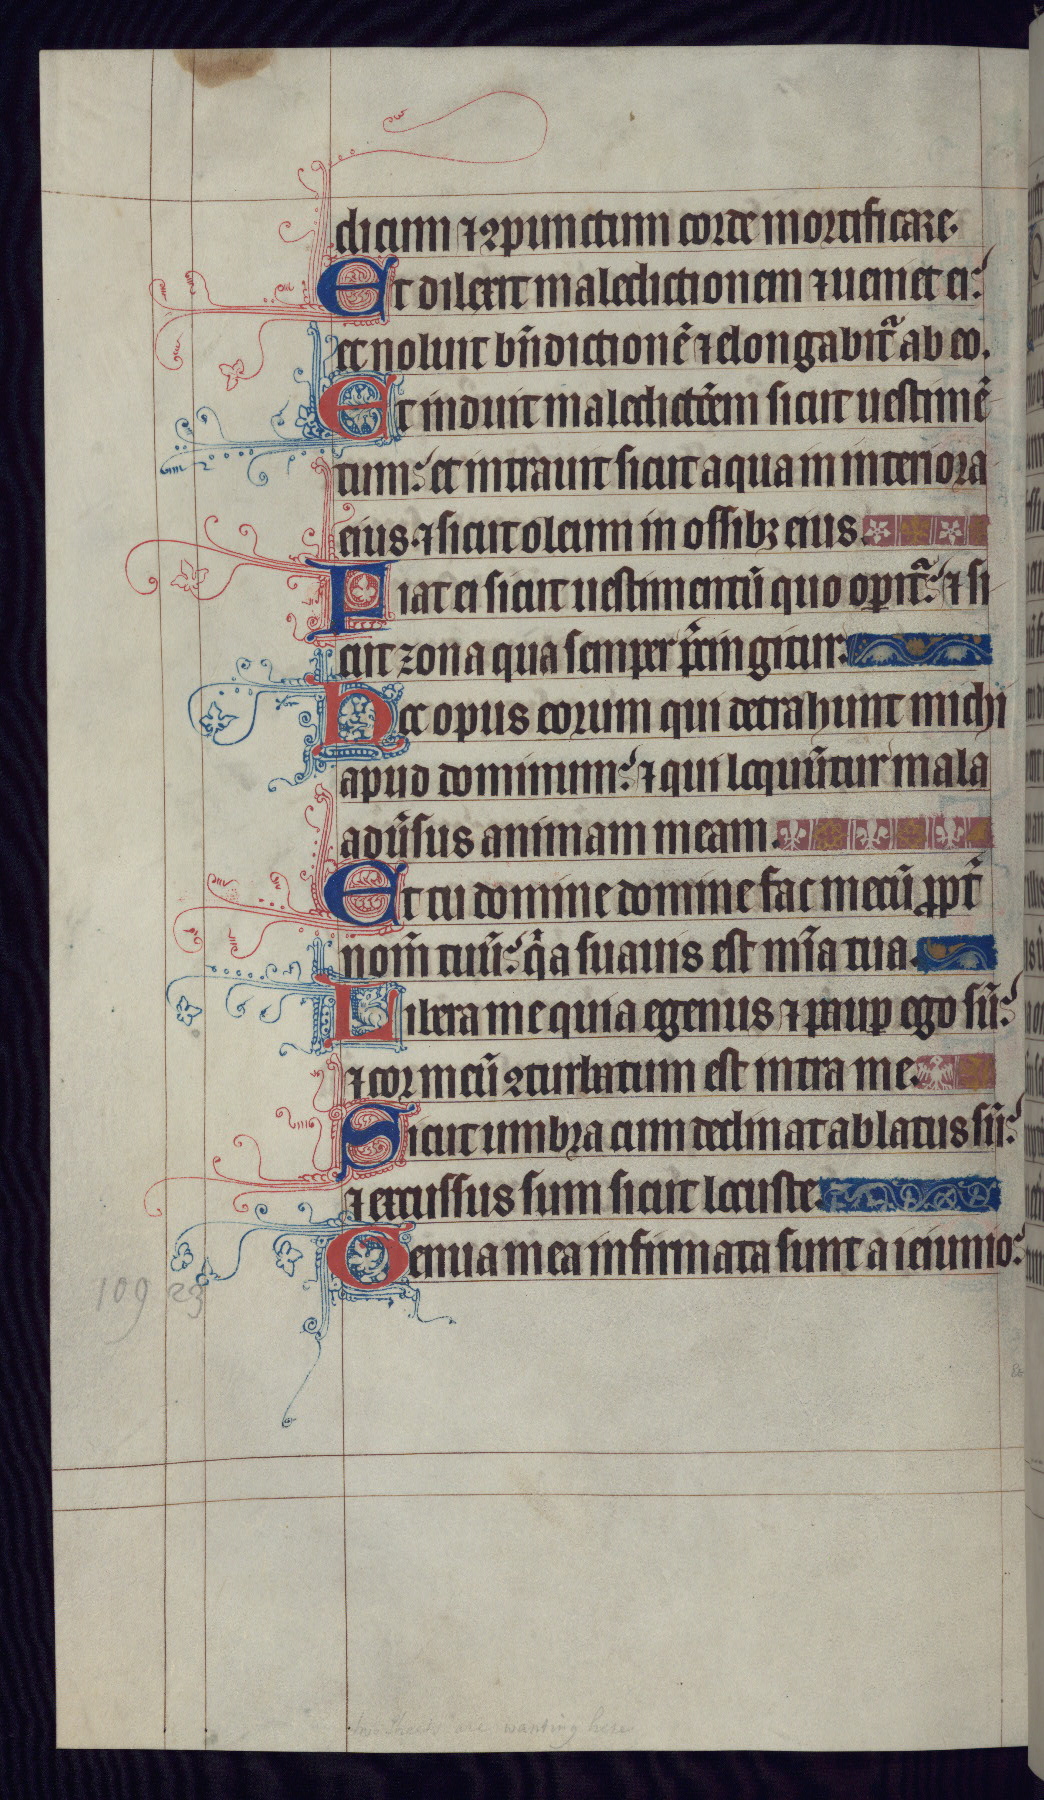 dicum ⁊ ꝯpunctum corde mortificare.
Et dilexit maledictionem ⁊ ueniet ei:
et noluit bn̄dictionē ⁊ elongabit᷑ ab eo.
Et induit maledictōem sicut uestimē
tum: et intrauit sicut aqua in interiora
eius ⁊ sicut oleum in ossibꝫ eius.
Fiat ei sicut uestimentū quo opit᷑: ⁊ si
cut zona qua semper p̄cingitur.
Hec opus eorum qui detrahunt michi
apud dominum: ⁊ qui loquūtur mala
adūsus animam meam.
Et tu domine domine fac mecū ꝓpt̄
nom̄ tuū: q̄a suauis est mīa tua.
Libera me quia egenus ⁊ paup̄ ego sū:
⁊ cor meū ꝯturbatum est intra me.
Sicut umbra cum declinat ablatus sū:
⁊ excussus sum sicut locuste
Genua mea infirmata sunt a ieiunio:
109 23
two sheets are wanting here